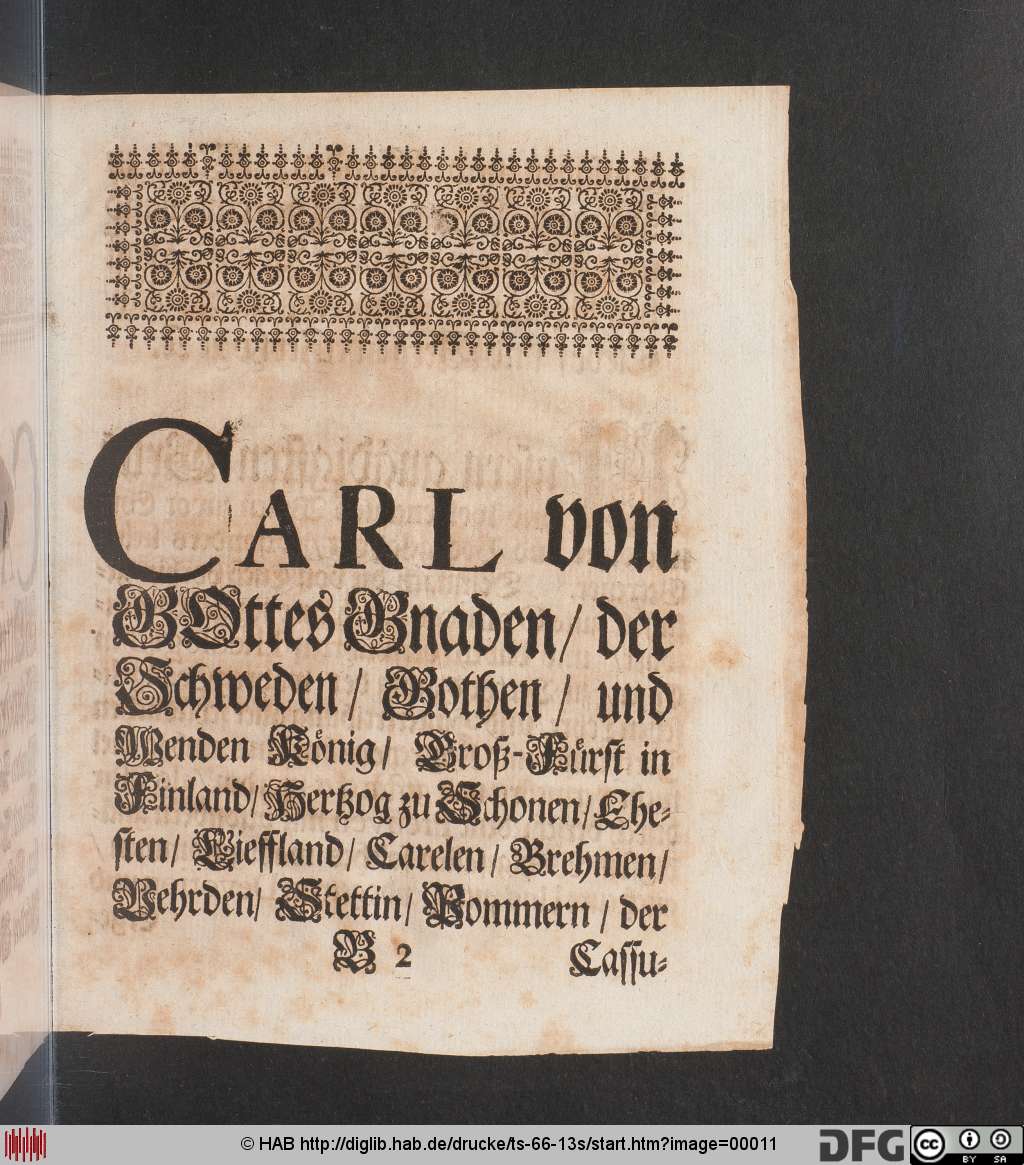 CARL von
GOttes Gnaden/ der
Schweden/ Gothen/ und
Wenden König/ Groß-Fürst in
Finland/ Hertzog zu Schonen/ Ehe-
sten/ Lieffland/ Carelen/ Brehmen/
Vehrden/ Stettin/ Pommern/ der
B 2 Cassu-
© HAB http://diglib.hab.de/drucke/ts-66-13s/start.htm?image=00011
DFG
cc BY SA